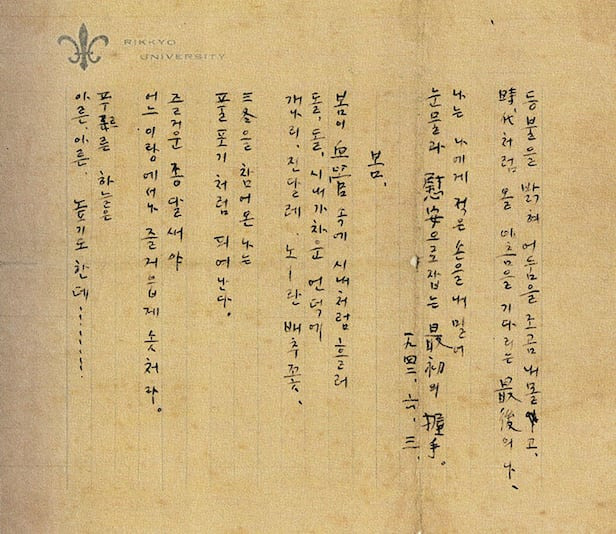 RIKKYO
UNIVERSITY
등불을 밝혀 어둠을 조금 내몰고,
時代처럼 올 아츰을 기다리는 最後의 나、
나는 나에게 적은 손을 내밀어
눈물과 慰安으로잡는 最初의 握手。
一九四二、六、三、
봄、
봄이 血管 속에 시내처럼 흘러
돌, 돌, 시내가차운 언덕에
개나리, 진달레, 노ー란 배추꽃、
三冬을 참어온 나는
풀포기 처럼 피여난다。
즐거운 종달새야
어느 이랑에서나 즐거웁게 솟처라。
푸르른 하늘은
아른, 아른, 높기도 한데………